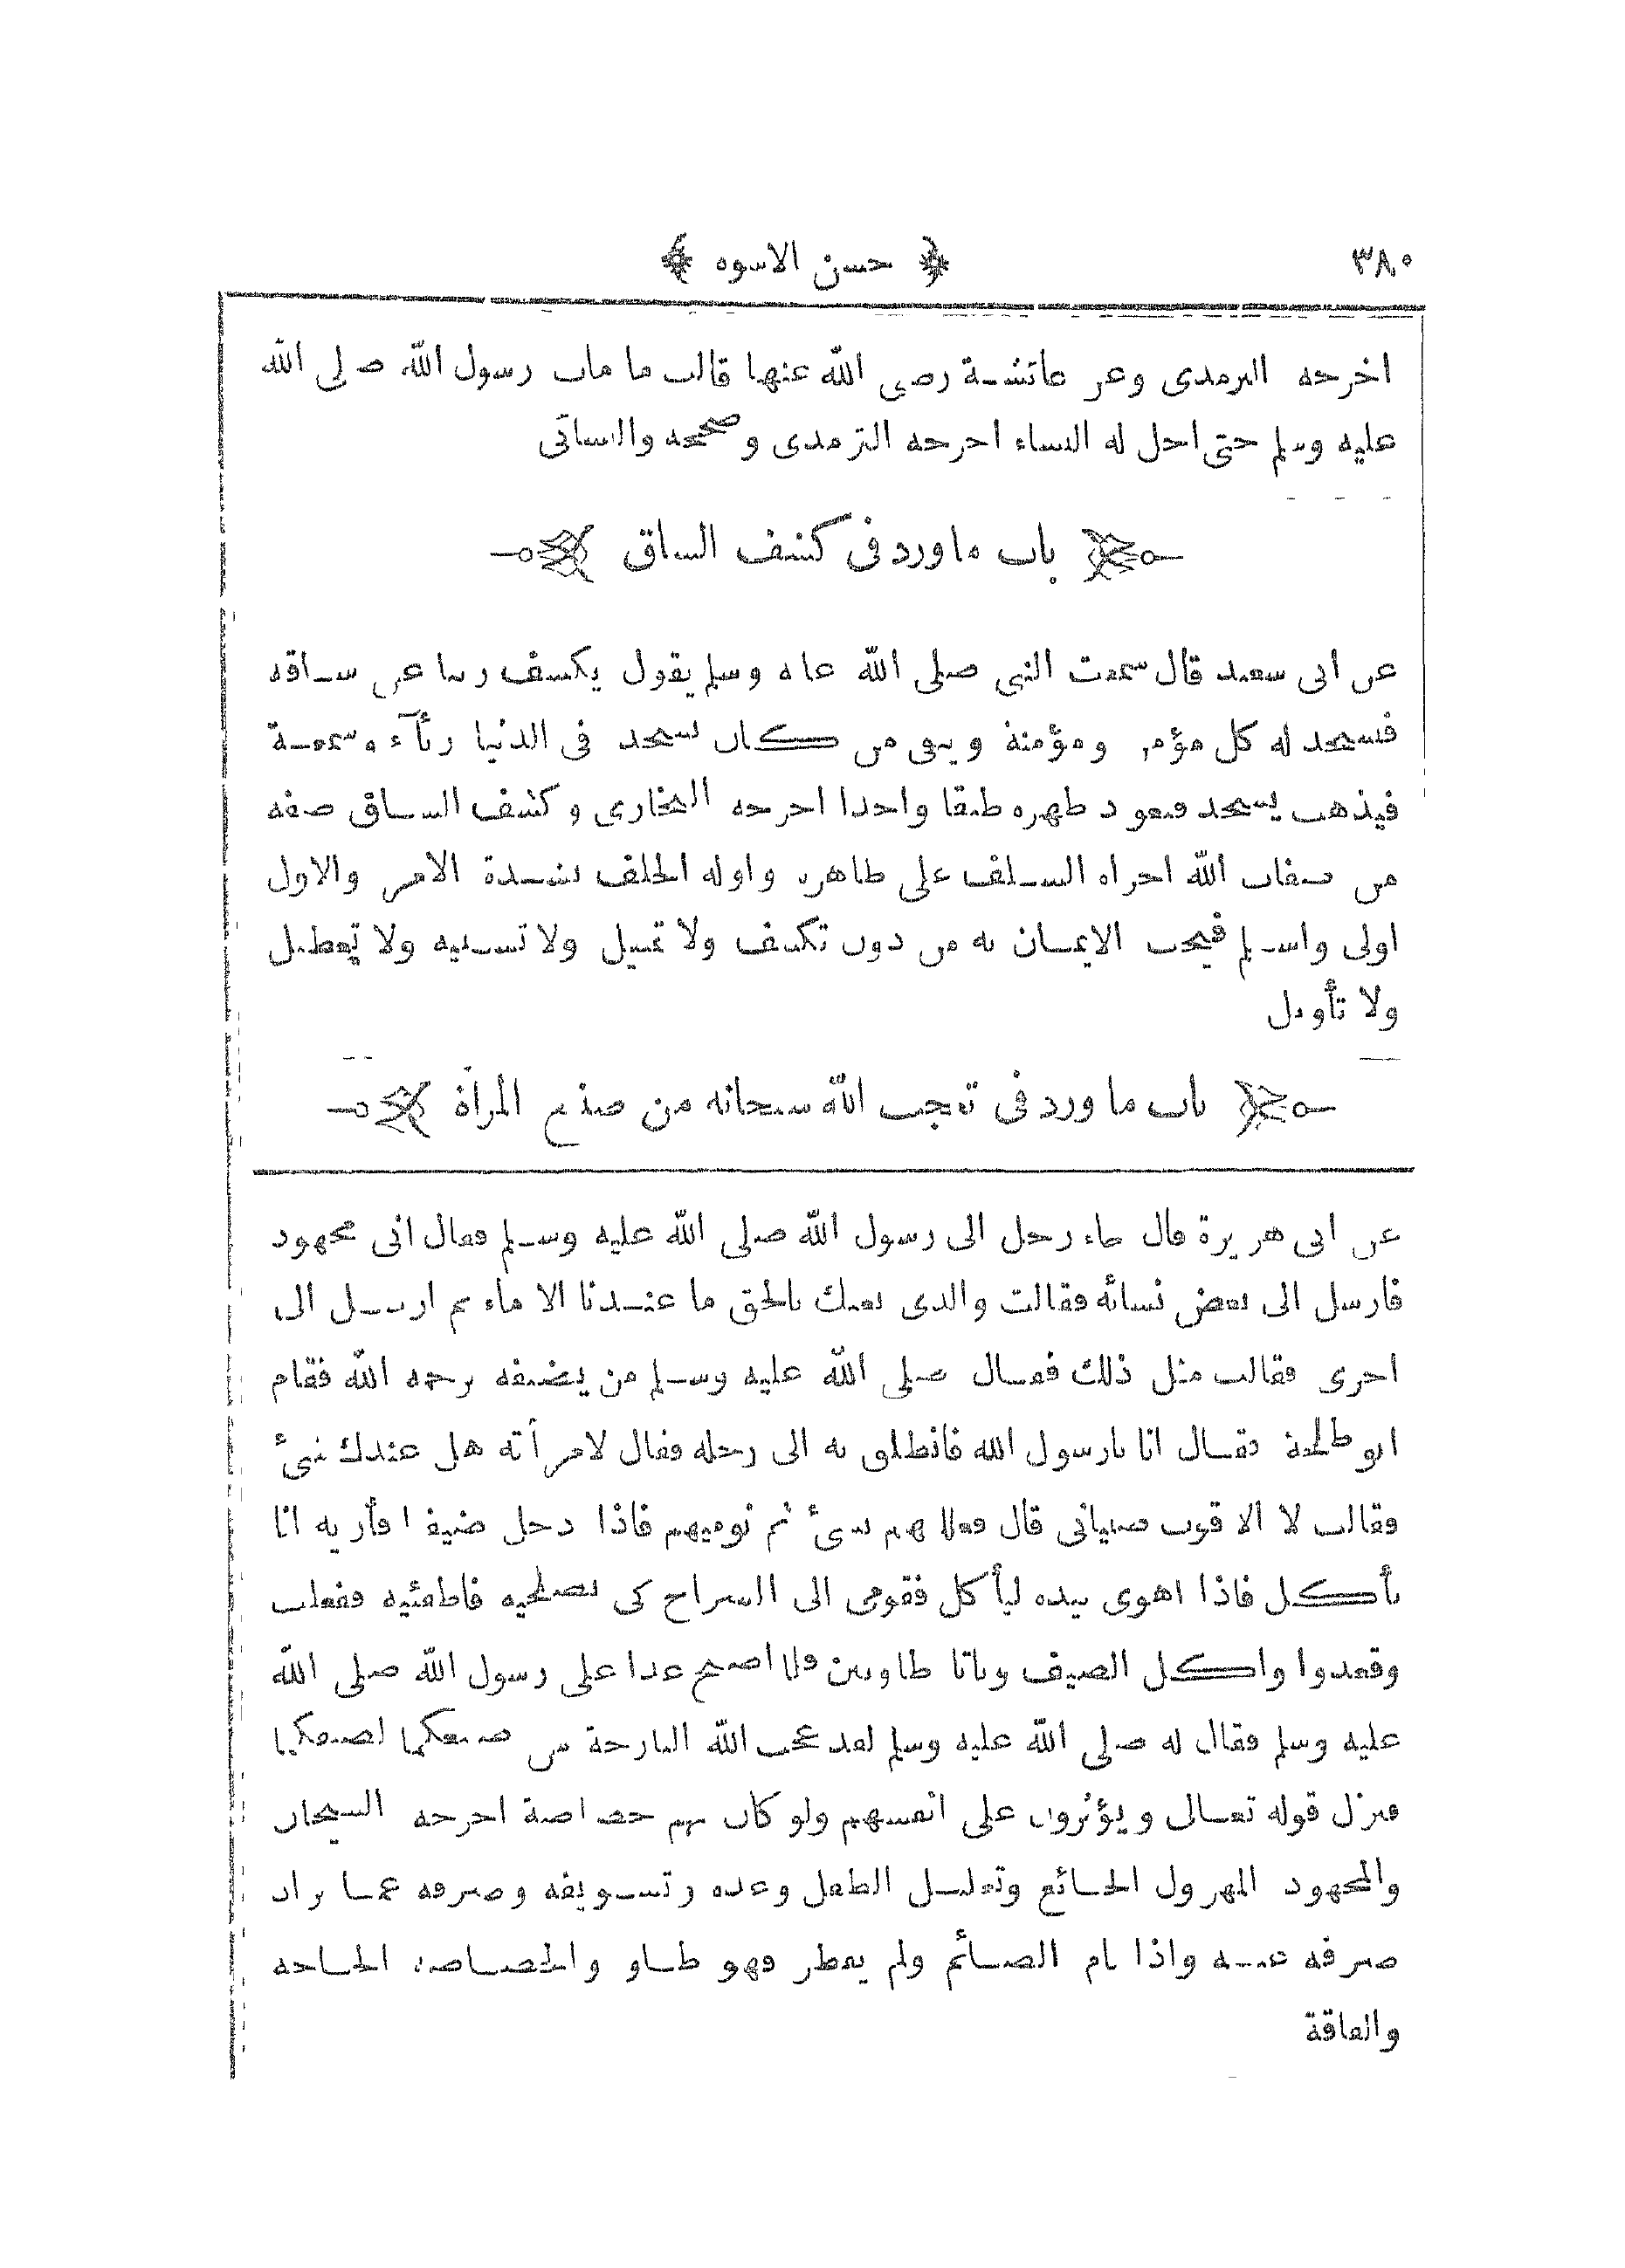 ٣٨٠ ﴿ حسن الاسوه ﴾
اخرجه الترمذى وعن عائشة رضى الله عنها قالت ما مات رسول الله صلى الله
عليه وسلم حتى احل له النساء اخرجه الترمذى وصححه والنسائى
باب ماورد فى كشف الساق
عن ابى سعيد قال سمعت النبى صلى الله عليه وسلم يقول يكشف ربنا عن ساقه
فيسجد له كل مؤمن ومؤمنة ويبقى من كان يسجد فى الدنيا رئآء وسمعة
فيذهب يسجد فيعود ظهره طبقا واحدا اخرجه البخارى وكشف الساق صفة
من صفات الله اجراه السلف على ظاهره واوله الخلف بشدة الامر والاول
اولى واسلم فيجب الايمان به من دون تكييف ولا تمثيل ولا تشبيه ولا تعطيل
ولا تأويل
باب ما ورد فى تعجب الله سبحانه من صنع المرأة
عن ابى هريرة قال جاء رجل الى رسول الله صلى الله عليه وسلم فقال انى مجهود
فارسل الى بعض نسائه فقالت والذى بعثك بالحق ما عندنا الا ماء ثم ارسل الى
اخرى فقالت مثل ذلك فقال صلى الله عليه وسلم من يضيفه يرحمه الله فقام
ابو طلحة فقال انا يارسول الله فانطلق به الى رحله فقال لامرأته هل عندك شئ
فقالت لا الا قوت صبيانى قال فعلليهم بشئ ثم نوميهم فاذا دخل ضيفنا فأريه انا
نأكل فاذا اهوى بيده ليأكل فقومى الى السراج كى تصلحيه فاطفئيه ففعلت
وقعدوا واكل الضيف وباتا طاويين فلما اصبح غدا على رسول الله صلى الله
عليه وسلم فقال له صلى الله عليه وسلم لقد عجب الله البارحة من صنيعكما لضيفكما
فنزل قوله تعالى ويؤثرون على انفسهم ولو كان بهم خصاصة اخرجه الشيخان
والمجهود المهزول الجائع وتعليل الطفل وعده وتسويفه وصرفه عما يراد
صرفه عنه واذا نام الصائم ولم يفطر فهو طاو والخصاصة الحاجة
والفاقة